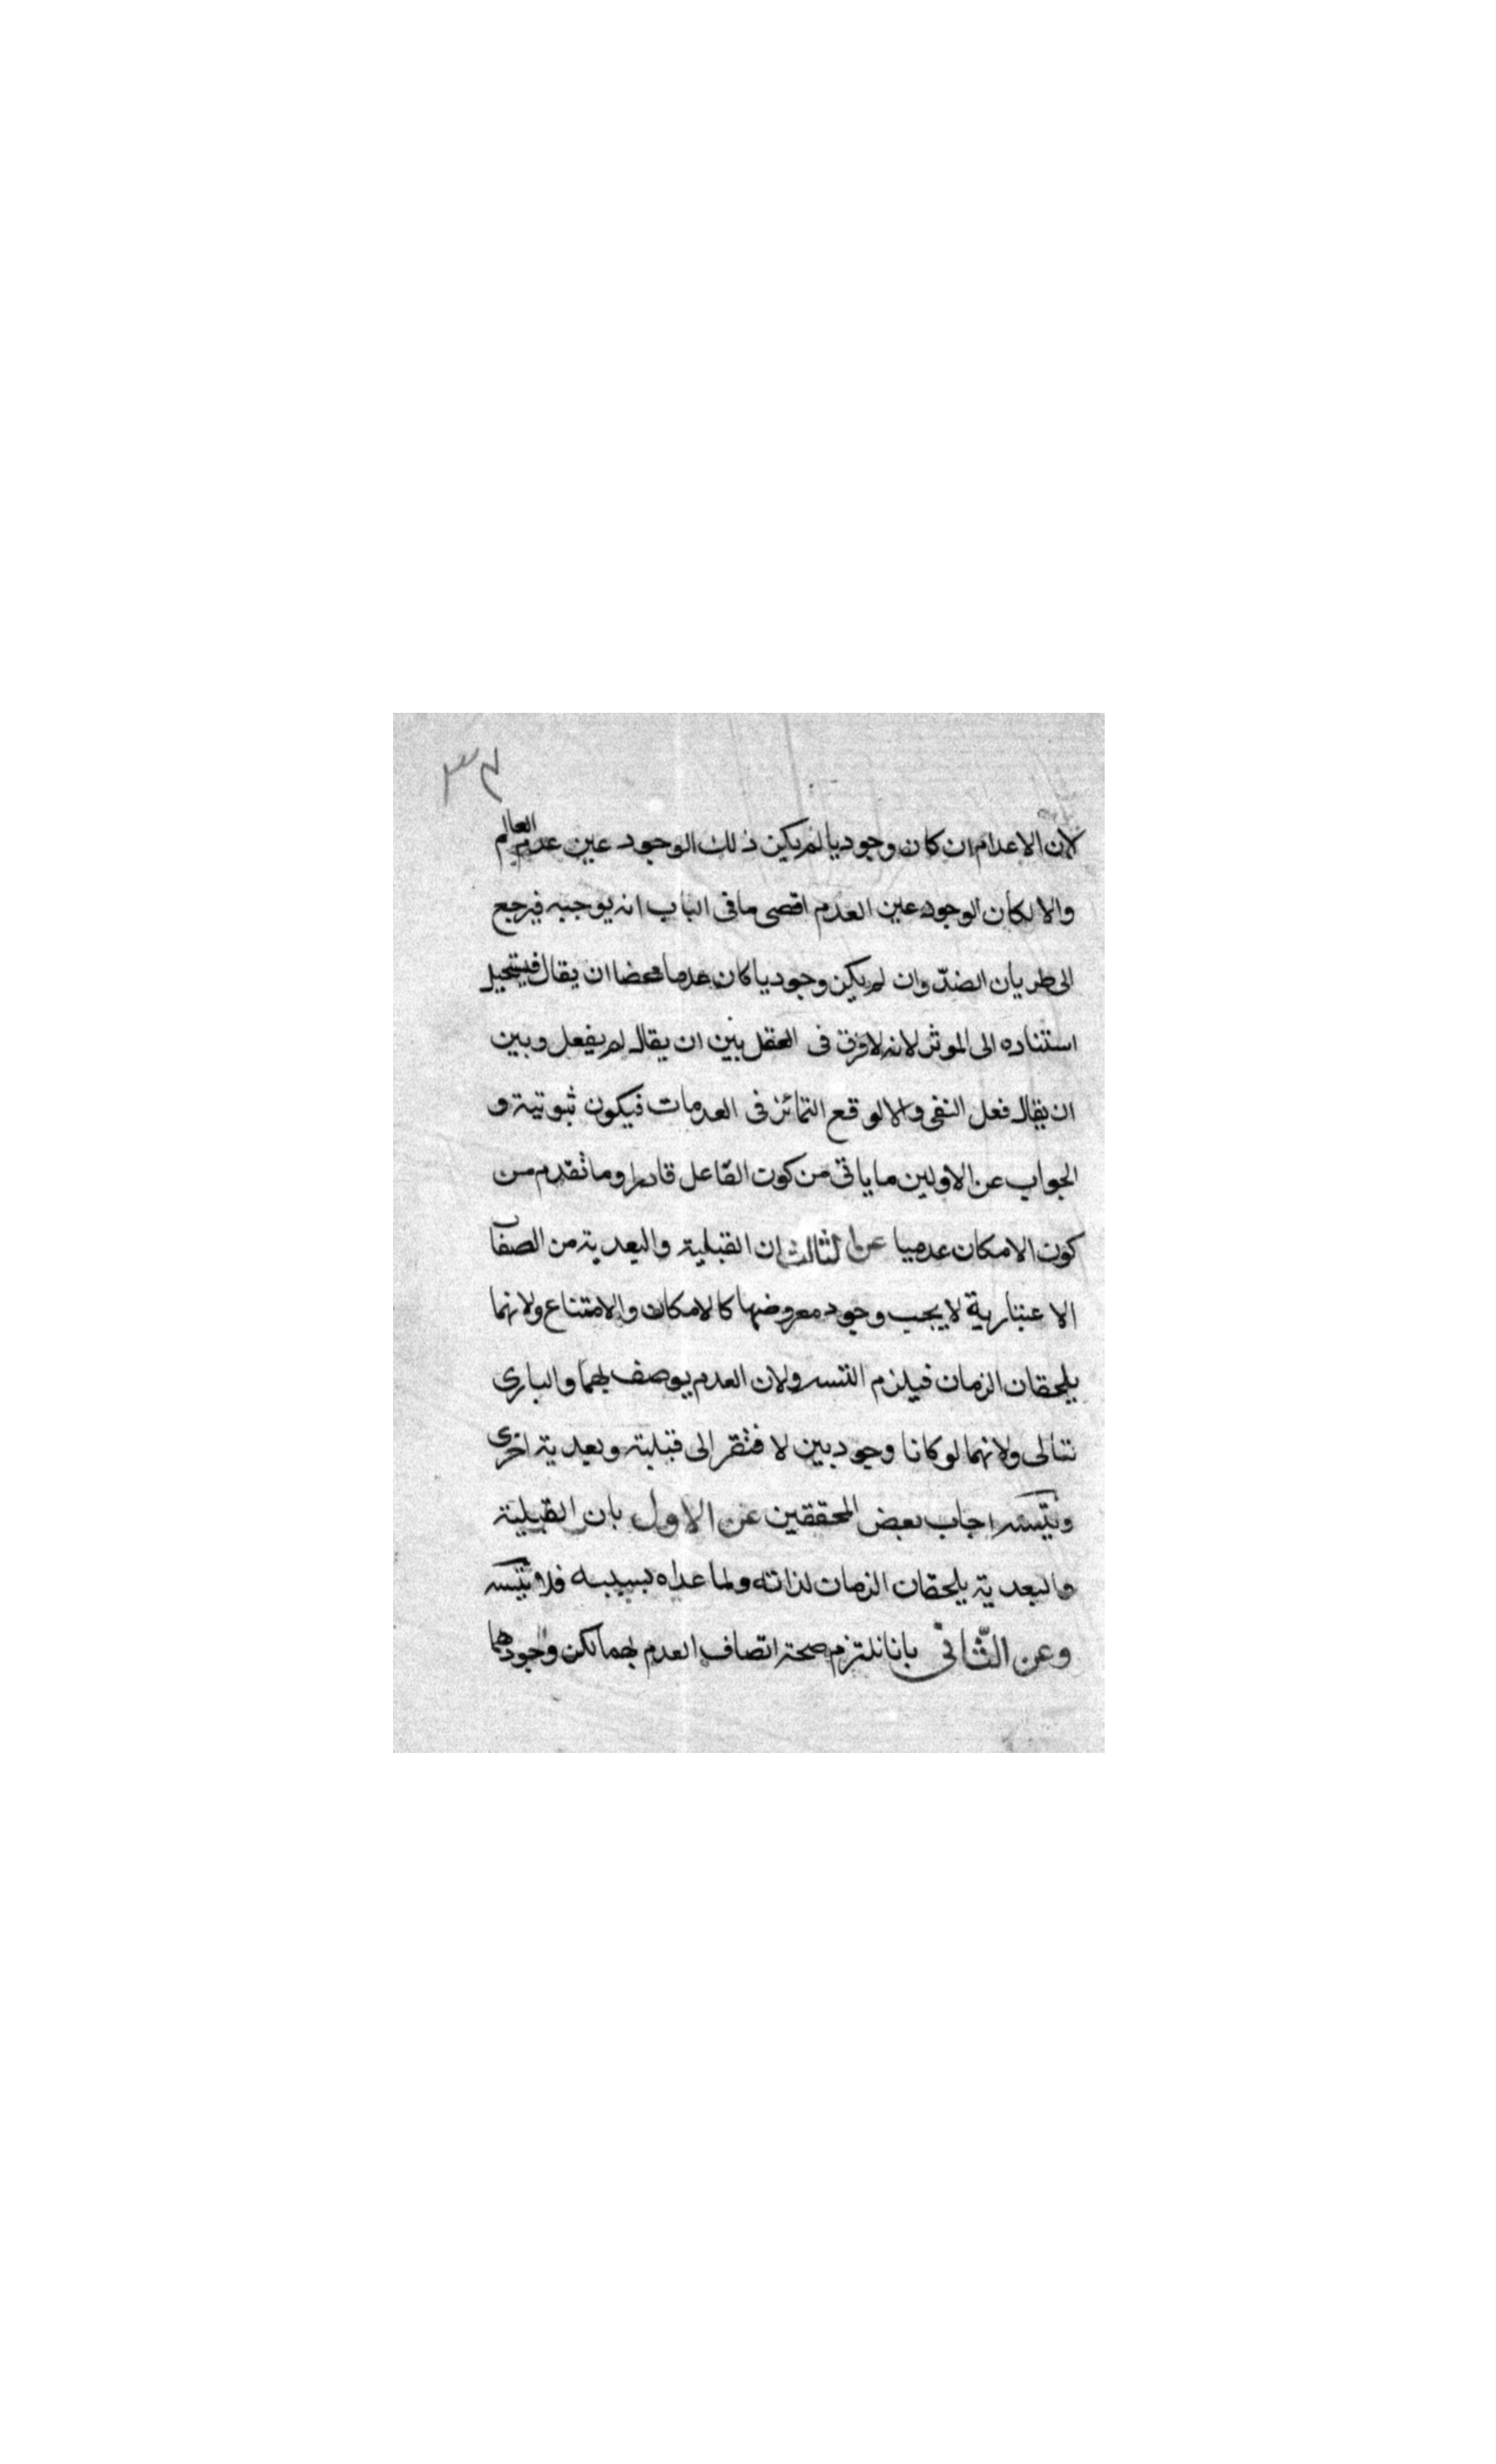 ٣٤
لان الاعدام ان كان وجوديا لم يكن ذلك الوجود عين عدم العالم
والا لكان الوجود عين العدم اقصى ما فى الباب انه يوجبه فيرجع
الى طريان الضدّ وان لم يكن وجوديا كان عدما محضا ان يقال فيستحيل
استناده الى الموثر لانه لا فرق فى العقل بين ان يقال لم يفعل وبين
ان يقال فعل النفى والا لوقع التمائز فى العدمات فيكون ثبوتية و
الجواب عن الاولين ما ياتى من كون الفاعل قادرا وما تقدم من
كون الامكان عدميا عن الثالث ان القبلية والبعدية من الصفات
الاعتبارية لا يجب وجود معروضها كالامكان والامتناع ولانهما
يلحقان الزمان فيلزم التسـ ولان العدم يوصف بهما والبارى
تتالى ولانهما لو كانا وجوديين لا فتقر الى قبلية وبعدية اخرى
ويتسـ اجاب بعض المحققين عن الاول بان القبلية
والبعدية يلحقان الزمان لذاته ولما عداه بسببه فلا يتسـ
وعن الثّانى بانا نلتزم صحة اتصاف العدم بهما لكن وجودهما